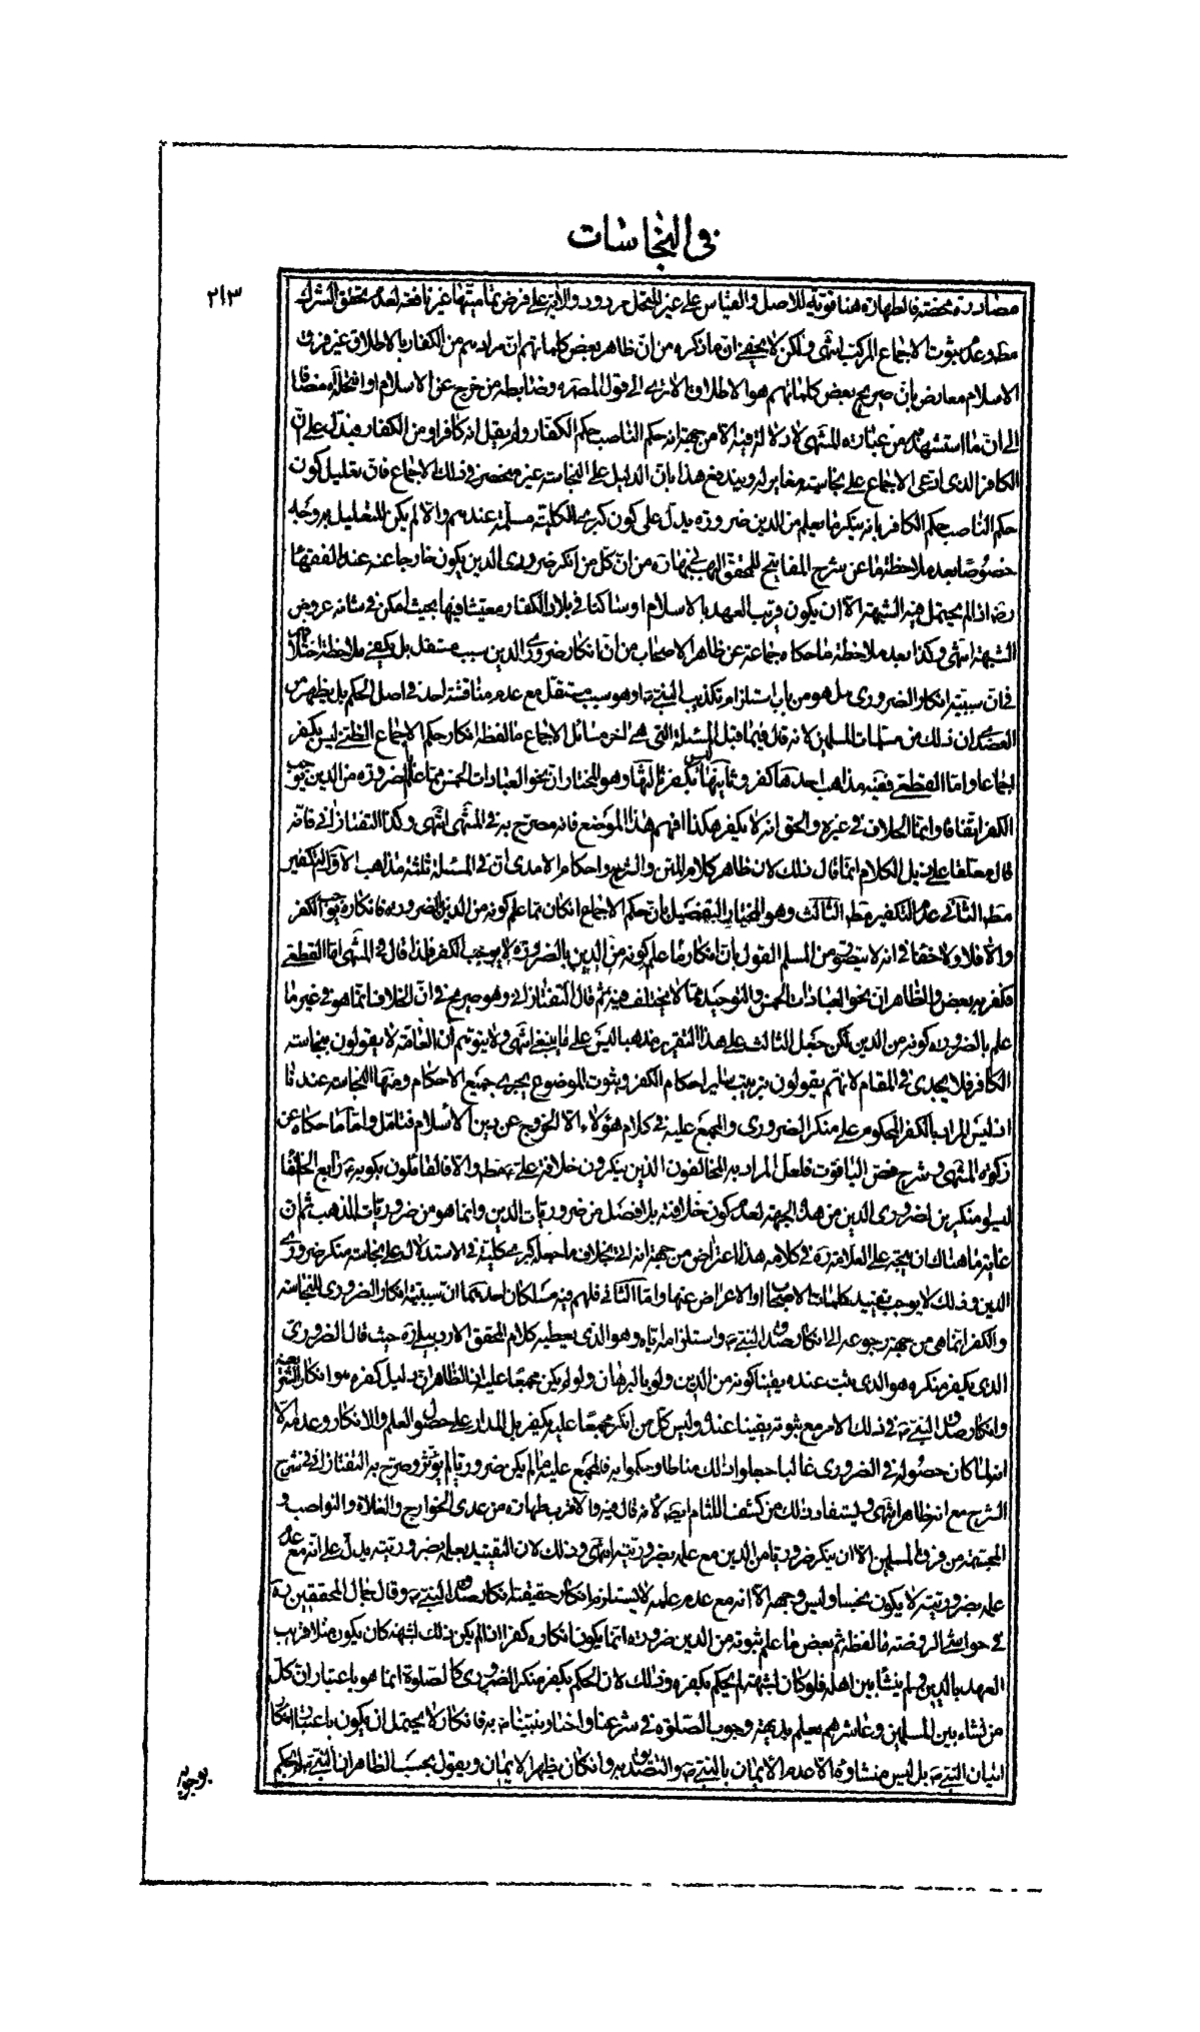 في النجاسات
٢١٣
مصادرة محضة فالطهارة هنا قوية للاصل والقياس على غير المحتمل مردود والاية على فرض تماميتها غير نافعة لعدم تحقق الشرك
مط وعدم ثبوت الاجماع المركب انتهى ولكن لا يخفى ان ما ذكره من ان ظاهر بعض كلماتهم ان مرادهم من الكفار بالاطلاق غير فرق
الاسلام معارض بان صريح بعض كلماتهم هو الاطلاق الا ترى الى قول المصره وضابطه من خرج عن الاسلام او انتحله مضافا
الى ان ما استشهد به من عبارة المنتهى لا دلالة فيه الا من جهة انه حكم الناصب حكم الكفار ولم يقل انه كافر او من الكفار فيدل على ان
الكافر الذى ادعى الاجماع على نجاسته مغاير له ويندفع هذا بان الدليل على النجاسة غير منحصر في ذلك الاجماع فان تعليل كون
حكم الناصب حكم الكافر بانه ينكر ما يعلم من الدين ضرورة يدل على كون كبرى الكلية مسلمة عندهم والا لم يكن للتعليل به وجه
خصوصا بعد ملاحظة ما عن شرح المفاتيح للمحقق البهبهاني ره من ان كل من انكر ضرورى الدين يكون خارجا عنه عند الفقهاء
رض اذا لم يحتمل فيه الشبهة الا ان يكون قريب العهد بالاسلام او ساكنا في بلاد الكفار متعيشا فيها بحيث امكن في شانه عروض
الشبهة انتهى وكذا بعد ملاحظة ما حكاه جماعة عن ظاهر الاصحاب من ان انكار ضرورى الدين سبب مستقل بل يكفى ملاحظة اختلافهم
في ان سببية انكار الضرورى هل هو من باب استلزام تكذيب النبى ص او هو سبب مستقل مع عدم مناقشة احد في اصل الحكم بل يظهر من
العضدى ان ذلك من مسلمات المسلمين لانه قال فيما قبل المسئلة التى هى اخر مسائل الاجماع ما لفظه انكار حكم الاجماع الظنى ليس بكفر
اجماعا واما القطعى ففيه مذاهب احدها كفر وثانيها ليس بكفر ثالثها وهو المختار ان نحو العبادات الخمس مما علم بالضرورة من الدين يوجب
الكفر اتفاقا وانما الخلاف في غيره والحق انه لا يكفر هكذا افهم هذا الموضع فانه مصرح به في المنتهى انتهى وكذا التفتازاني فانه
قال معلقا على ذيل الكلام انما قال ذلك لان ظاهر كلام المتن والشروح واحكام الامدى ان في المسئلة ثلثة مذاهب الاول التكفير
مط الثاني عدم التكفير مط الثالث وهو المختار التفصيل بان حكم الاجماع ان كان مما علم كونه من الدين بالضرورة فانكاره يوجب الكفر
والا فلا ولا خفاء في انه لا يتصور من المسلم القول بان انكار ما علم كونه من الدين بالضرورة لا يوجب الكفر فلذا قال في المنتهى اما القطعى
فكفر به بعض والظاهر ان نحو العبادات الخمس والتوحيد مما لا يختلف فيه ثم قال التفتازاني وهو صريح في ان الخلاف انما هو في غير ما
علم بالضرورة كونه من الدين لكن جعل الثالث على هذا التقرير مذهبا ليس على ما ينبغى انتهى ولا يتوهم ان العامة لا يقولون بنجاسة
الكافر فلا يجدى في المقام لانهم يقولون بترتيب ساير احكام الكفر وبثبوت الموضوع يجرى جميع الاحكام ومنها النجاسة عندنا
اذ ليس المراد بالكفر المحكوم على منكر الضرورى والمجمع عليه في كلام هؤلاء الا الخروج عن دين الاسلام فتامل واما ما حكاه عن
زكوة المنتهى وشرح فص الياقوت فلعل المراد به المخالفون الذين ينكرون خلافة على ع مط والا فالقائلون بكونه ع رابع الخلفاء
ليسوا منكرين لضرورى الدين من هذه الجهة لعدم كون خلافته بلا فصل من ضروريات الدين وانما هو من ضروريات المذهب ثم ان
غاية ما هناك ان يتجه على العلامة ره في كلامه هذا اعتراض من جهة انه اتى بخلاف ما جعله كبرى كلية في الاستدلال على نجاسة منكر ضرورى
الدين وذلك لا يوجب تقييد كلمات الاصحاب او الاعراض عنها واما الثاني فلهم فيه مسلكان احدهما ان سببية انكار الضرورى للنجاسة
والكفر انما هى من جهة رجوعه الى انكار صدق النبى ص واستلزامه اياه وهو الذى يعطيه كلام المحقق الاردبيلى ره حيث قال الضرورى
الذى يكفر منكره هو الذى ثبت عنده يقينا كونه من الدين ولو بالبرهان ولو لم يكن مجمعا عليه اذ الظاهر ان دليل كفره هو انكار الشريعة
وانكار صدق النبى ص في ذلك الامر مع ثبوته يقينا عنده وليس كل من انكر مجمعا عليه يكفر بل المدار على حصول العلم والانكار وعدمه الا
انه لما كان حصوله في الضرورى غالبا جعلوا ذلك مناطا وحكموا به فالمجمع عليه ما لم يكن ضروريا لم يؤثر وصرح به التفتازاني في شرح
الشرح مع انه ظاهر انتهى ويستفاد ذلك من كشف اللثام ايضا لانه قال فيه والاقرب طهارة من عدى الخوارج والغلاة والنواصب و
المجسمة من فرق المسلمين الا ان ينكر ضروريا من الدين مع علمه بضروريته انتهى وذلك لان التقييد بعلمه بضروريته يدل على انه مع عدم
علمه بضروريته لا يكون نجسا وليس وجهه الا انه مع عدم علمه لا يستلزم انكار حقيقته انكار صدق النبى ص وقال جمال المحققين ره
في حواشى الروضة ما لفظه ثم بعض ما علم ثبوته من الدين ضرورة انما يكون انكاره كفرا ان لم يكن ذلك لشبهة كان يكون مثلا قريب
العهد بالدين ولم ينشأ بين اهله فلو كان لشبهة لم يحكم بكفره وذلك لان الحكم بكفر منكر الضرورى كالصلوة انما هو باعتبار ان كل
من نشاء بين المسلمين وعاشرهم يعلم بديهة وجوب الصلوة في شرعنا واخبار نبينا ص به فانكاره لا يحتمل ان يكون باعتبار انكار
اتيان النبى ص بل ليس منشاؤه الا عدم الايمان بالنبى ص والتصديق به وان كان يظهر الايمان ويقول بحسب الظاهر ان النبى ص لم يحكم
بوجوبه